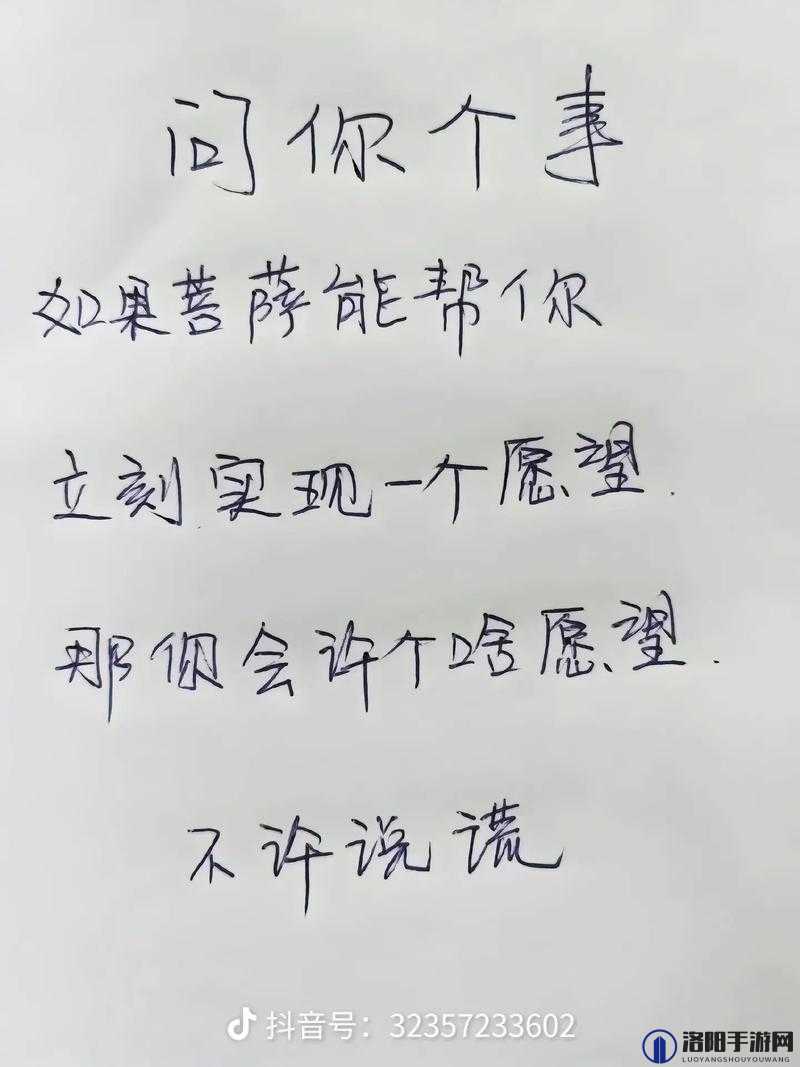 问你个事
如果菩萨能帮你
立刻实现一个愿望.
那你会许个啥愿望.
不许说谎
抖音号：32357233602
洛阳手游网
LUOYANGSHOUYOUWANG